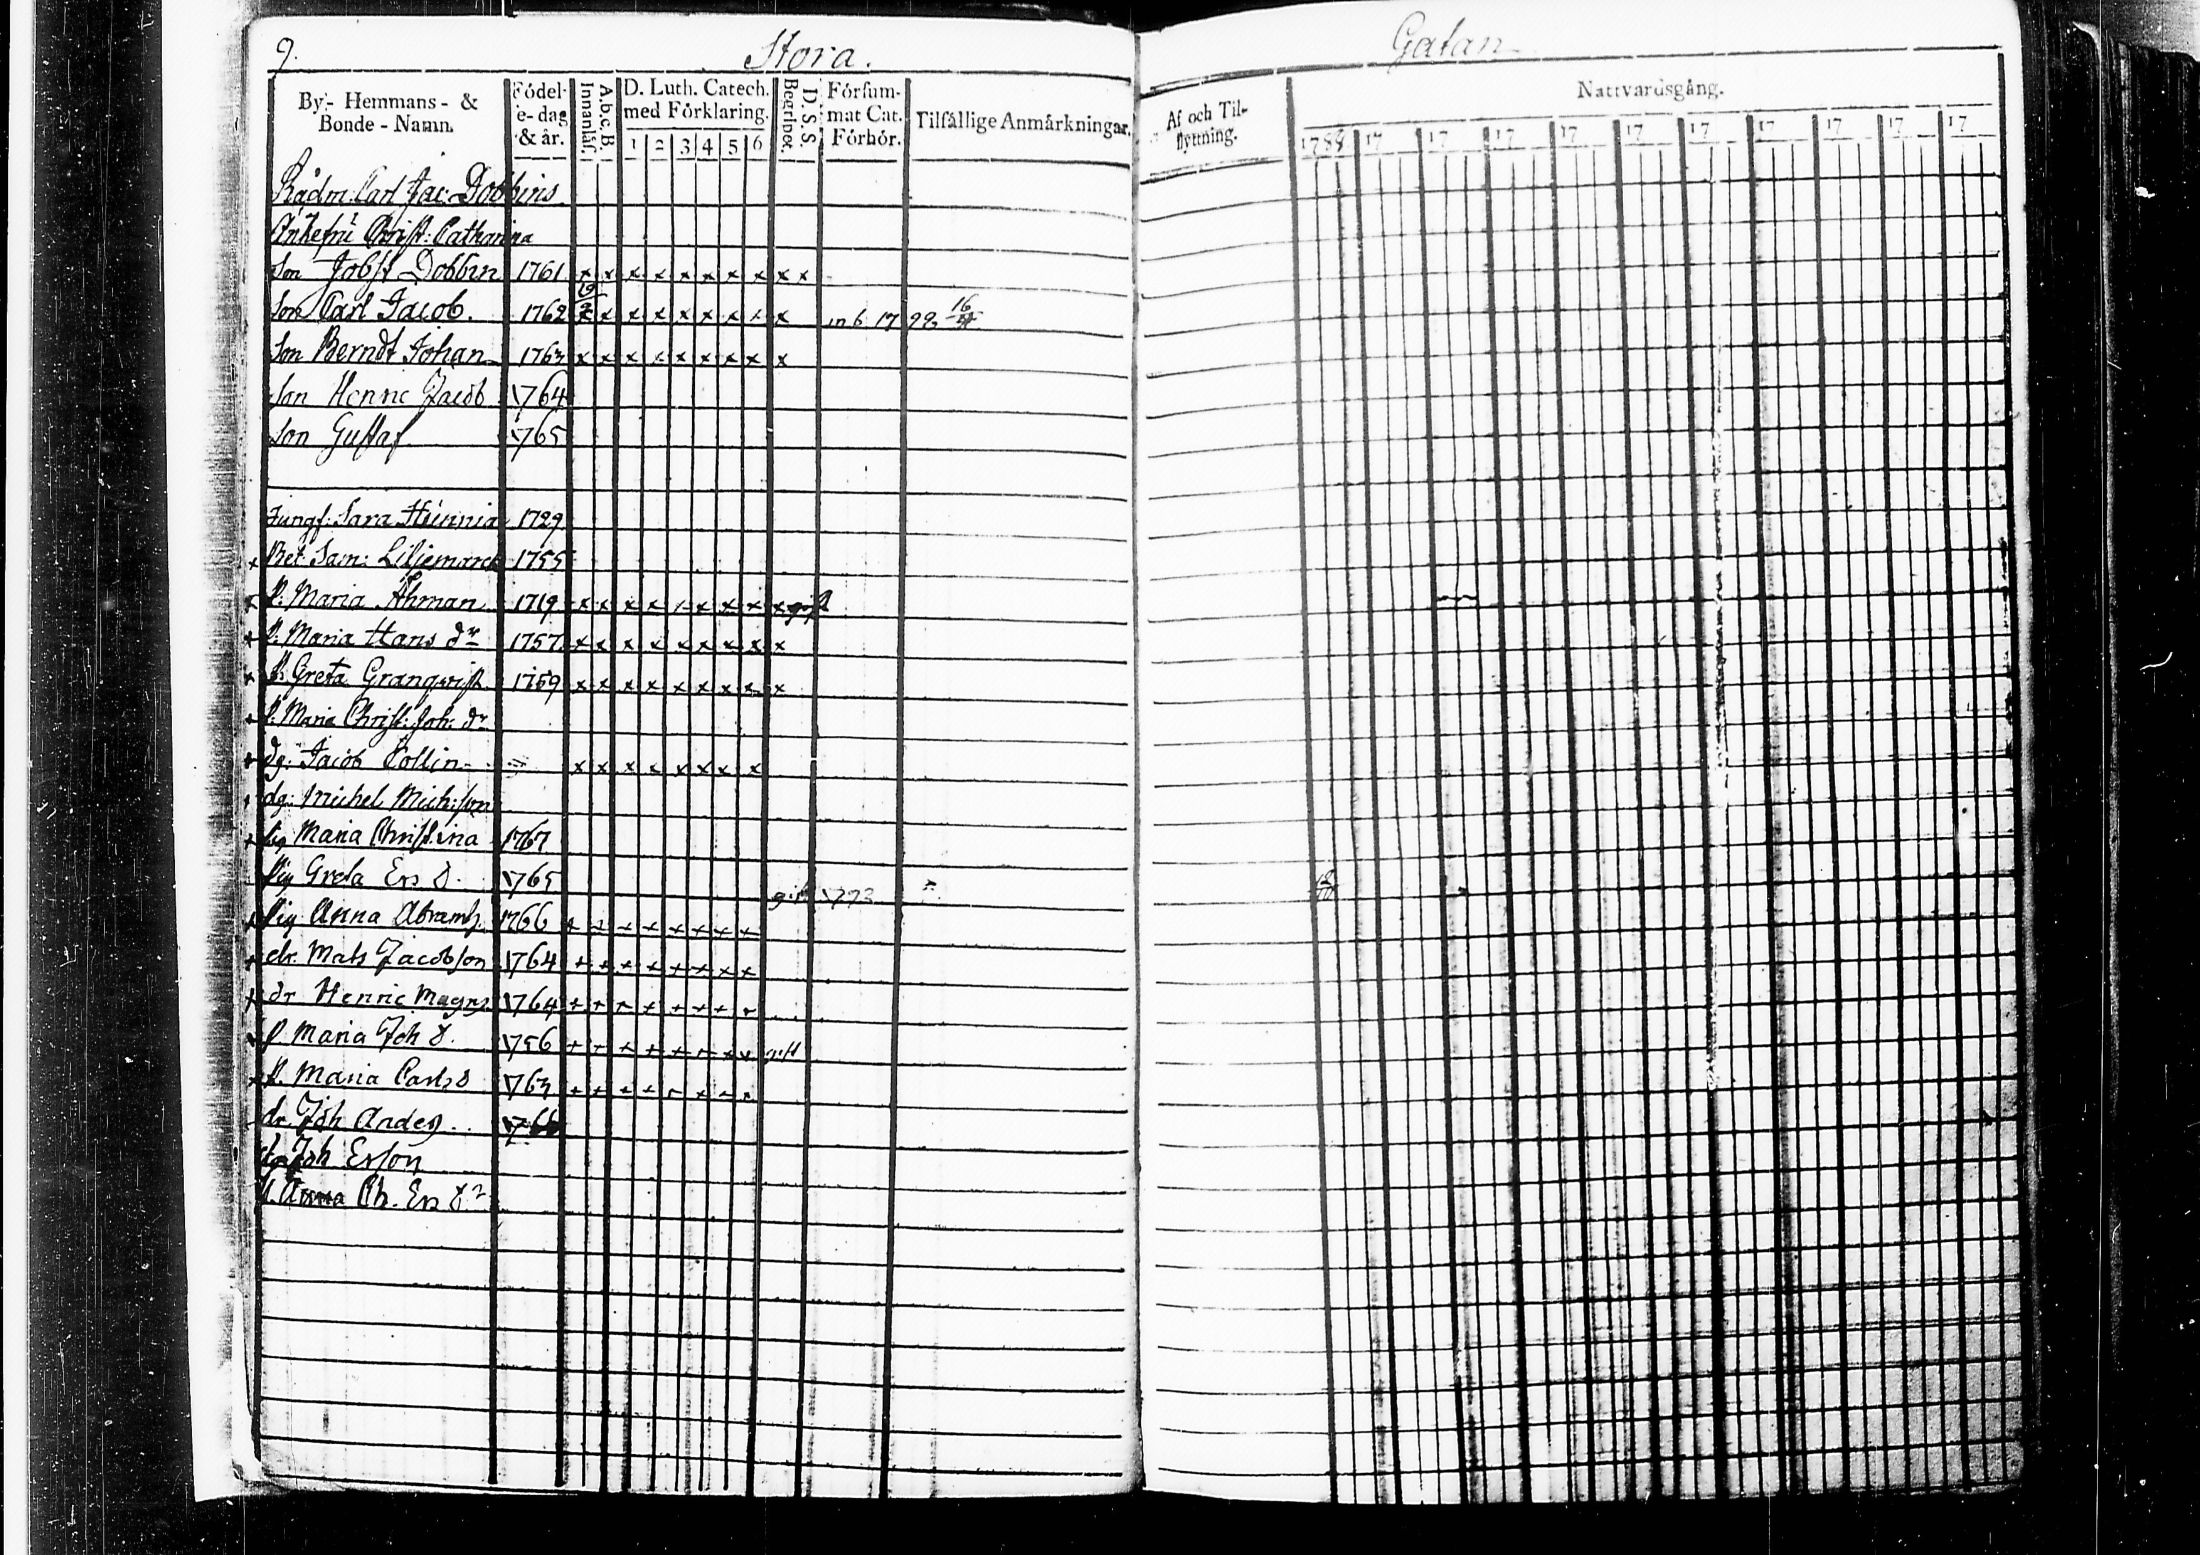 9. Stora. Gatan
By- Hemmans- & Bonde-Namn.
Födel-e-dag & år.
Innanläs.
A.b.c.B
D. Luth. Catech. med Förklaring.
1 2 3 4 5 6
Begripet.
D. S. S.
Försum-mat Cat. Förhör.
Tilfällige Anmärkningar.
Af och Til-flyttning.
Nattvardsgång.
1788 17 17 17 17 17 17 17 17 17 17
Rådm: Carl Jac: Dobbins
Änkefru Christ: Catharina
Son Jobst Dobbin 1761 x x x x x x x x x x
Son Carl Jacob. 1762 x x x x x x x x x 1799 16
Son Berndt Johan 1763 x x x x x x x x x
Son Henric Jacob 1764
Son Gustaf 1765
Jungf: Sara 1729
Bet Sam: Liljemarck 1755
P. Maria Åhman 1719 x x x x x x x x x gift
P. Maria Hans dr 1757 x x x x x x x x x
P. Greta Granqvist 1759 x x x x x x x x x
P. Maria Christ: Joh: dr
dg: Jacob Collin x x x x x x x x
dg: Michel Mich:son
Pig Maria Christina 1767
Pig Greta Ers D. 1765 gift 1793
Pig Anna Abramsd. 1766 x x x x x x x x
dr. Mats Jacobson 1764 + + + + + + x x
dr Henric Magns 1764 + + + + + + +
P. Maria Joh D. 1756 + + + + + + x x gift
P. Maria Carls D 1763 + + + + + + + x
dr. Joh Anders
Joh Erson
P. Anna Ch. Ers Dr